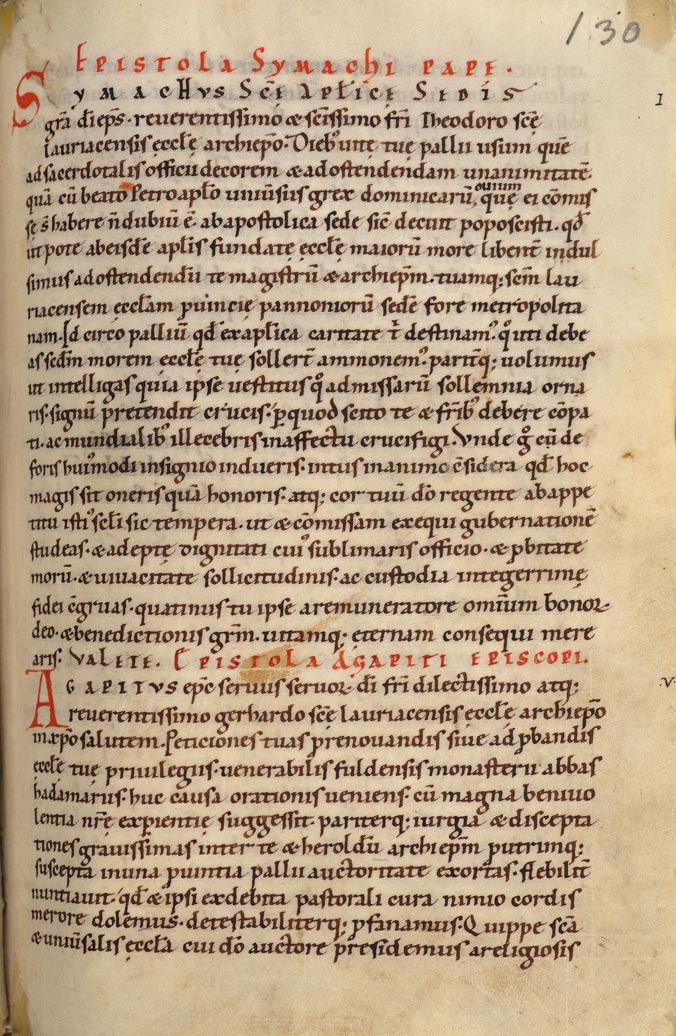 130
Epistola Symachi pape.
Symachus Scē Aplice Sedis I
grā dī ep̄s. reverentissimo & scissimo frī Theodoro scē
lauriacensis eccłe archiep̄o. Dieb; uite tue pallii usum quē
ad sacerdotalis officii decorem & ad ostendendam unanimitatē.
quā cū beato Petro aplo uniūsus grex dominicarū ouium, quę ei cōmis
sę s̄ habere n̄ dubiū ē. ab apostolica sede sic̄ decuit poposcisti. qđ
ut pote ab eisdē aplis fundatę eccłe maiorū more libent̄ indul
simus ad ostendendū te magistrū & archiep̄m. tuamq; scm̄ lau
riacensem eccłam puincię pannoniorū sedē fore metropolita
nam. Id circo palliū qđ ex aplica caritate t̄ destinam᾽. q᾽ uti debe
as sedm̄ morem eccłe tuę sollert̄ ammonem᾽. parit̄q; uolumus
ut intelligas quia ipse uestitus q᾽ ad missarū sollemnia orna
ris. signū pretendit crucis. p quod scito te & frib; debere cōpa
ti. ac mundialib; illecebris in affectu crucifigi. Unde g᾽ cū de
foris hui᾽modi insignio indueris. intus in animo c̄sidera qđ hoc
magis sit oneris quā honoris. atq; cor tuū dō regente ab appe
titu isti᾽ scłi sic tempera. ut & cōmissam exequi gubernationē
studeas. & adeptę dignitati cui᾽ sublimaris officio. & pbitate
morū. & uiuacitate sollicitudinis. ac custodia integerrimę
fidei c̄gruas. quatinus tu ipse a remuneratore omnium bonoꝝ
deo. & benedictionis grm̄. uitamq; eternam consequi mere
aris. Valete. Epistola Agapiti episcopi.
Agapitus ep̄c seruus seruoꝝ dī frī dilectissimo atq; .v.
reuerentissimo gerhardo scē lauriacensis eccłe archiep̄o
in xpo salutem. Peticiones tuas p renouandis siue ad pbandis
eccłe tuę priuilegiis. uenerabilis fuldensis monasterii abbas
hadamarus. huc causa orationis ueniens. cū magna beniuo
lentia nr̄e expientię suggessit. pariterq; iurgia & discepta
tiones grauissimas inter te & heroldū archiep̄m p utrinq;
suscepta in una puintia pallii auctoritate exortas. flebilit̄
nuntiauit. qđ & ipsi ex debita pastorali cura nimio cordis
merore dolemus. detestabiliterq; pfanamus. Quippe scā
& uniūsalis eccła cui dō auctore presidemus a religiosis